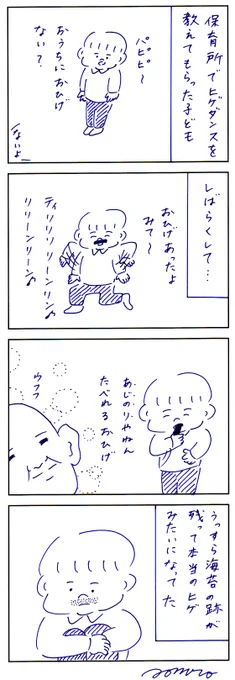 保育所でヒゲダンスを
教えてもらった子ども
パピピ〜
おうちにおひげ
ない？
ないよ
しばらくして…
おひげあったよ
みて〜
ティリリリリーンリン♪
リリーンリーン♪
あじのりやねん
たべれるおひげ
ウフフ
うっすら海苔の跡が
残って本当のヒゲ
みたいになってた